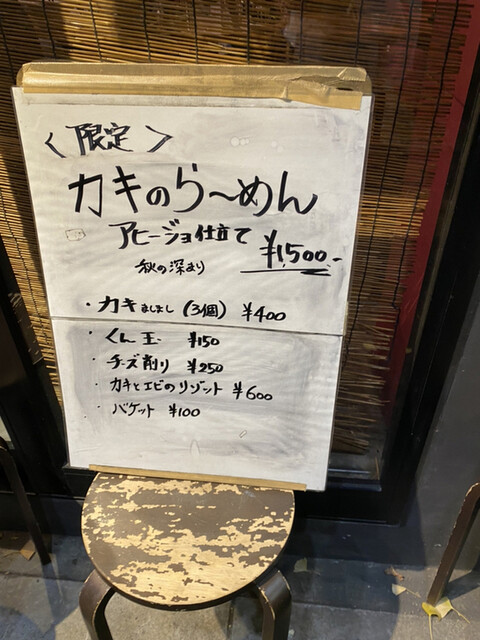 〈限定〉
カキのら〜めん
アヒージョ仕立て
¥1,500-
秋の深まり
・カキましまし(3個) ¥400
・くん玉 ¥150
・チーズ削り ¥250
・カキとエビのリゾット ¥600
・バケット ¥100